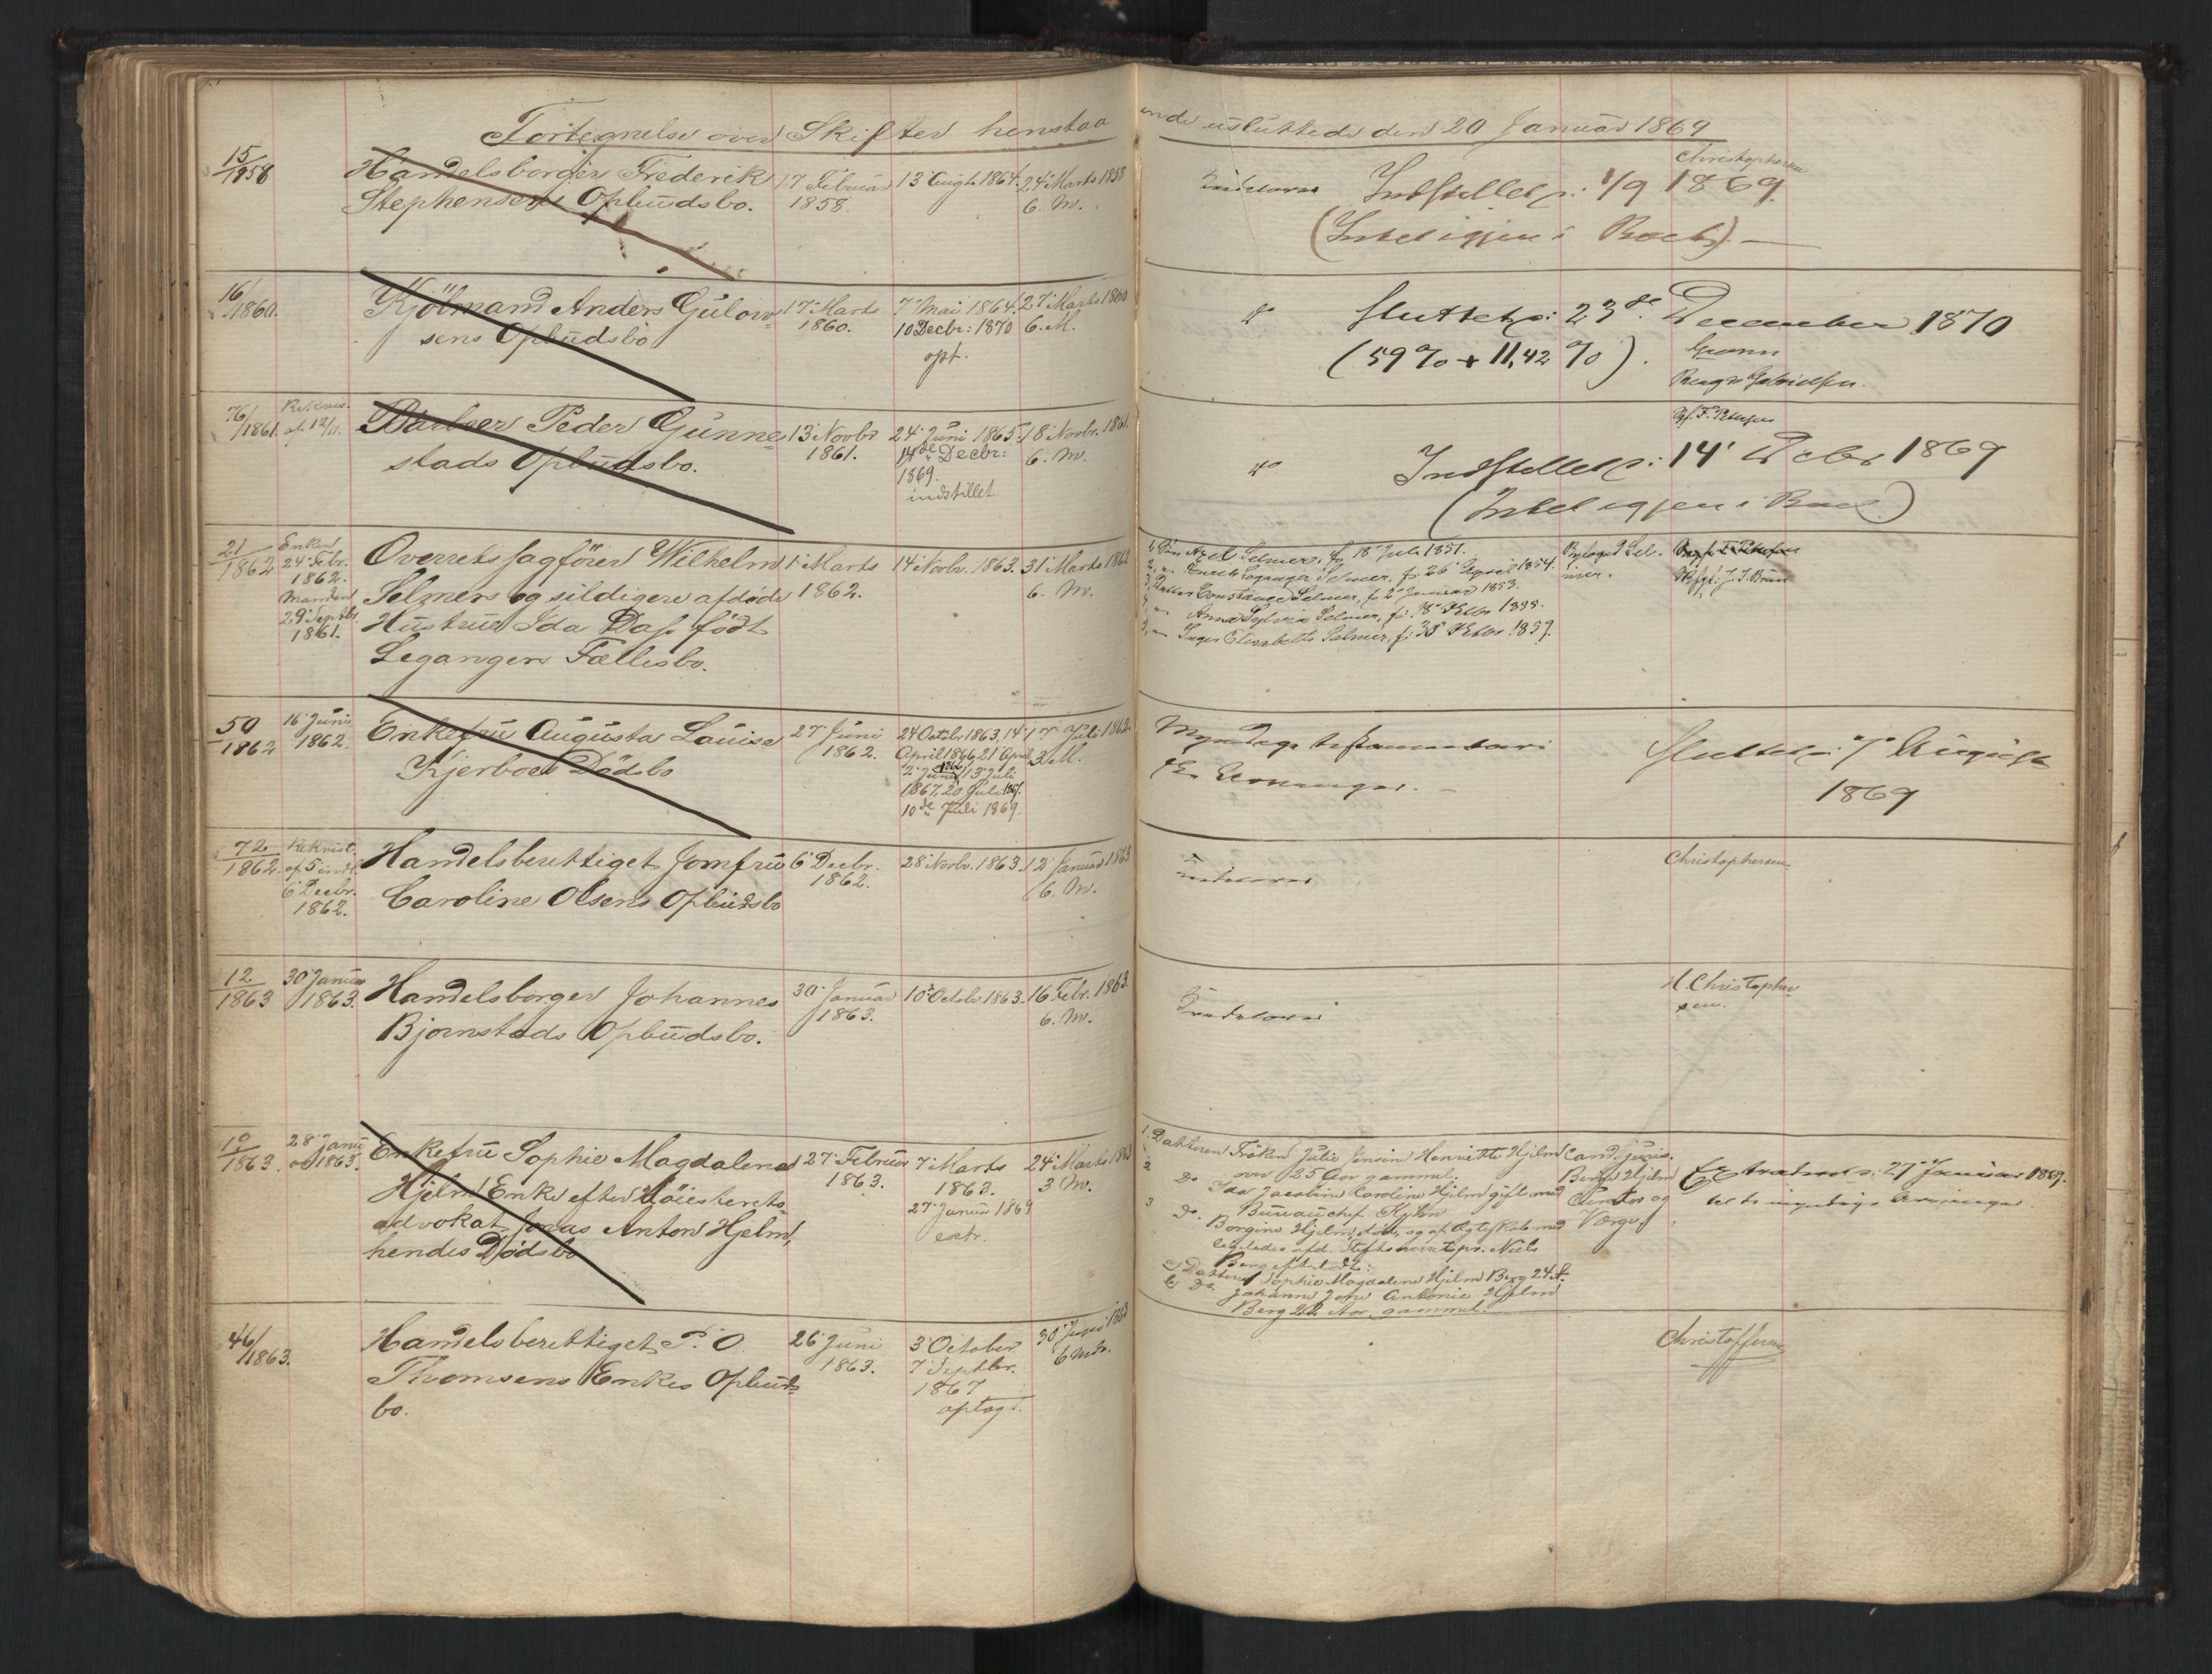 Fortegnelse over Skifter henstaaende usluttede den 20 Januar 1869
15/1858
Handelsborger Frederik
Stephensens Opbudsbo.
17 Februar
1858.
13 Augt. 1864.
24 Marts 1858
6. M.
Christophersen
Indstillet p: 1/9 1869.
16/1860.
Kjöbmand Anders Gulow-
sens Opbudsbo
17 Marts
1860.
7 Mai 1864.
10 Decbr: 1870
opt.
27 Marts 1860
6. M.
do
Sluttet p: 23de December 1870
(59 % + 11,42 %).
76/1861.
Rekvis.
af 12/11.
Barber Peder Gunne-
stads Opbudsbo.
13 Novbr
1861.
24 Juni 1865.
14de Decbr:
1869.
indstillet
18 Novbr. 1861.
6. M.
do
Indstillet p: 14 Decbr 1869
21/1862
Enken
24 Febr.
1862.
Manden
29 Septbr.
1861.
Overretssagförer Wilhelm
Selmers og sildigere afdöde
Hustrue Ida Dass födt
Leganger's Fællesbo.
1 Marts
1862.
14 Novbr. 1863.
31 Marts 1862
6. M.
1, Sön Axel Selmer, f. 18 Juli 1851.
2, " Leganger Selmer, f. 26 April 1854.
3, Datter Constance Selmer, f. 2 Januar 1853.
4, " Anna Sylvia Selmer, f. 8
5, " Inger Elisabeth Selmer, f: 30
Byfoged Sel-
mer.
J. J. Bruun
50/1862
16 Juni
1862.
Enkefru Augusta Louise
Kjerboes Dödsbo
27 Juni
1862.
24 Octbr. 1863, 14
April 1866, 21 April
1866,
2 Juni, 13 Juli
1867, 20 Juli 1867.
10de Juli 1869.
17 Juli 1862.
3 M.
Myndige testamentari
Sluttet p: 7 August
1869
72/1862.
Rekvisit.
af 5 indk.
6 Decbr.
1862.
Handelsberettiget Jomfru
Caroline Olsens Opbudsbo
6 Decbr.
1862.
28 Novbr. 1863.
12 Januar 1863
6. M.
Christophersen
12/1863
30 Januar
1863.
Handelsborger Johannes
Bjornstads Opbudsbo.
30 Januar
1863.
10 Octobr 1863.
16 Febr. 1863.
6. M.
H. Christopher
sen.
19/1863.
28 Janu
ar 1863.
Enkefru Sophie Magdalena
Hjelm Enke efter Höiesterets-
advokat Jonas Anton Hjelm,
hendes Dödsbo
27 Februar
1863.
7 Marts
1863.
27 Januar 1869
extr.
24 Marts 1863
3 M.
1. Datteren Fröken Julie Jensine Henriette Hjelm
over 25 Aar gammel.
2 Do Ida Jacobine Caroline Hjelm gift med
Bureauchef
3 Do. Borgine Hjelm, död, og af Ægteskab med
ligeledes afd. Niels
Berg efterladt:
a) Datteren Sophie Magdalene Hjelm Berg 24 A.
b) Do. Johanne Jone Antonie Hjelm
Berg 22 Aar gammel.
Cand. juris.
Berg Hjelm
Curator og
Værge.
Extraderet p: 27 Januar 1869.
til de myndige Arvinger.
46/1863.
Handelsberettiget P. O.
Thomsens Enkes Opbuds
bo.
26 Juni
1863.
3 October
7 Septbr.
1867
optagt.
30 Juni 1863
6 Mdr.
Christoffersen